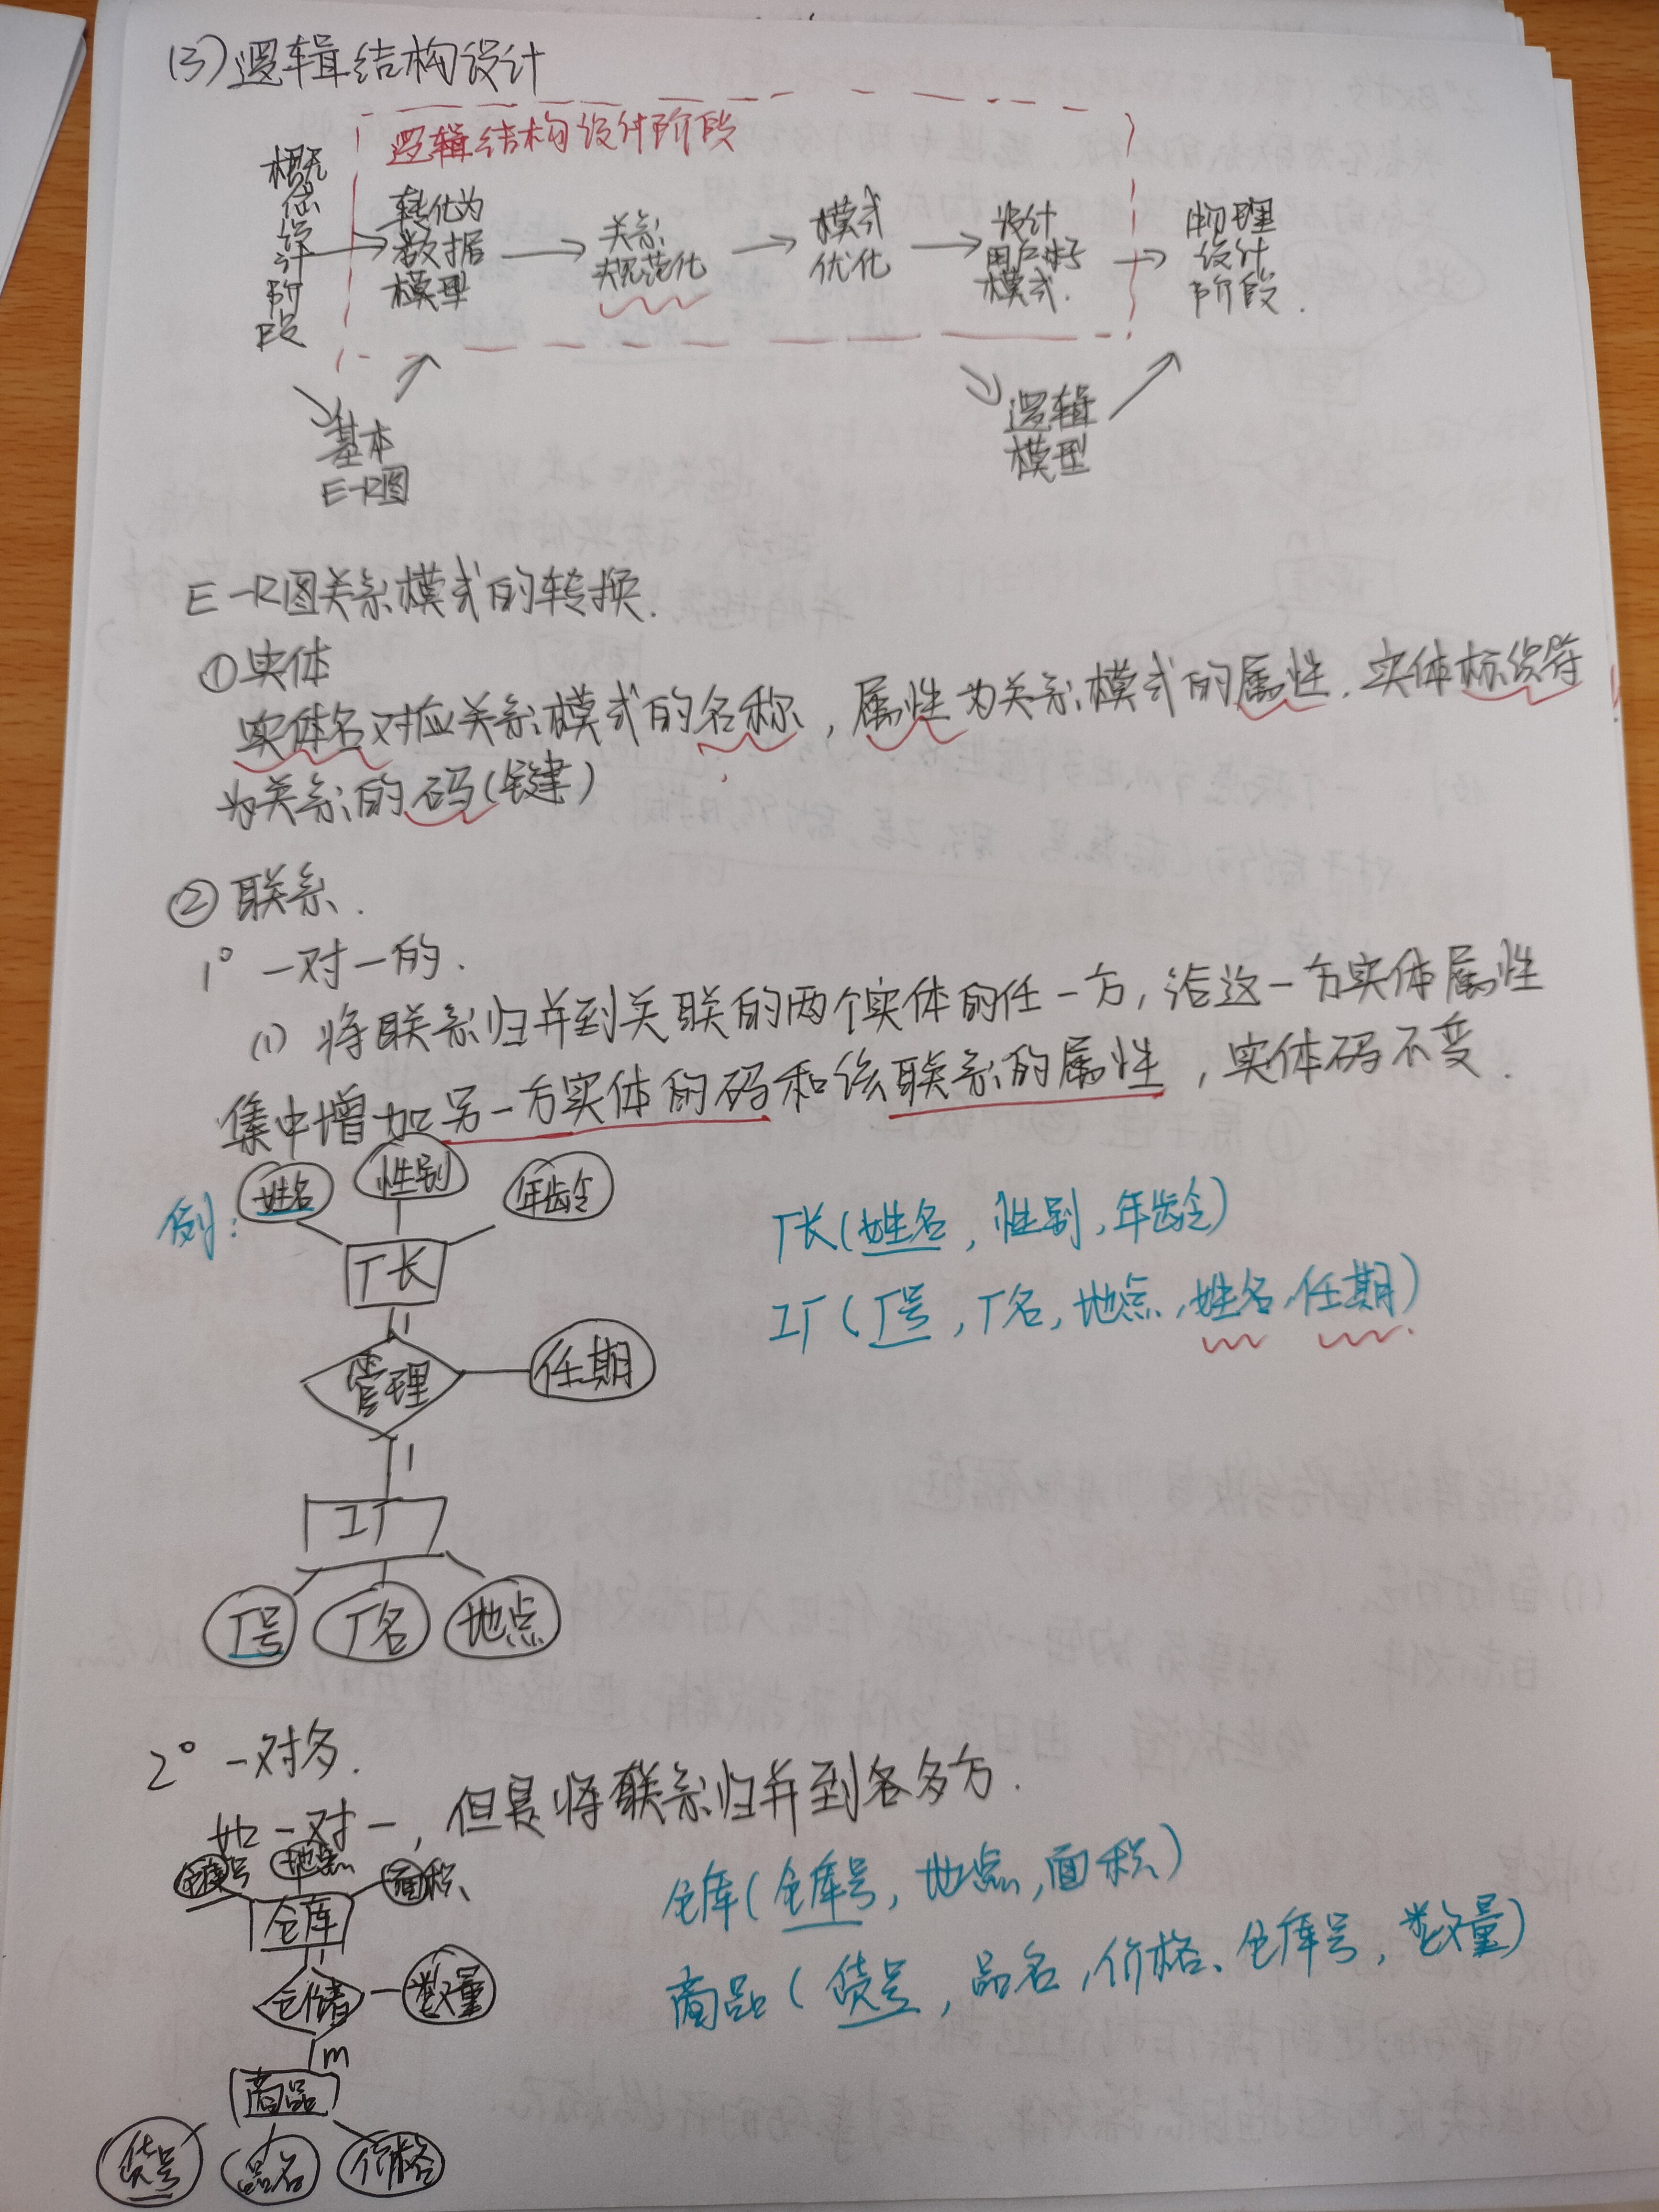 (3)逻辑结构设计
逻辑结构设计阶段
概念设计阶段
转化为
数据
模型
关系
规范化
模式
优化
设计
用户子
模式.
物理
设计
阶段.
基本
E-R图
逻辑
模型
E-R图关系模式的转换.
①实体
实体名对应关系模式的名称,属性为关系模式的属性.实体标识符
为关系的码(键)
②联系.
1° 一对一的.
(1) 将联系归并到关联的两个实体的任一方,给这一方实体属性
集中增加另一方实体的码和该联系的属性,实体码不变.
例:
姓名
性别
年龄
厂长
1
管理
任期
1
工厂
厂号
厂名
地点
厂长(姓名,性别,年龄)
工厂(厂号,厂名,地点,姓名,任期)
2° 一对多.
如一对一,但是将联系归并到各多方.
仓库号
地点
面积
仓库
1
仓储
数量
m
商品
货号
品名
价格
仓库(仓库号,地点,面积)
商品(货号,品名,价格、仓库号,数量)